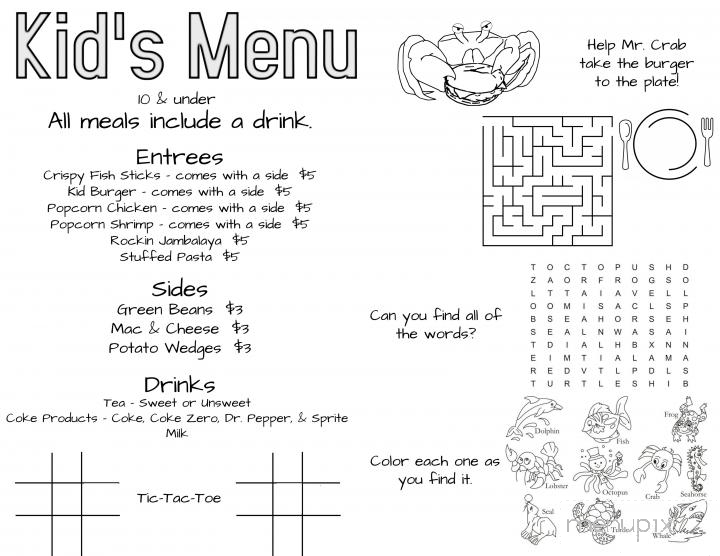 Kid's Menu
10 & under
All meals include a drink.
Entrees
Crispy Fish Sticks - comes with a side $5
Kid Burger - comes with a side $5
Popcorn Chicken - comes with a side $5
Popcorn Shrimp - comes with a side $5
Rockin Jambalaya $5
Stuffed Pasta $5
Sides
Green Beans $3
Mac & Cheese $3
Potato Wedges $3
Drinks
Tea - Sweet or Unsweet
Coke Products - Coke, Coke Zero, Dr. Pepper, & Sprite
Milk
Tic-Tac-Toe
Help Mr. Crab
take the burger
to the plate!
Can you find all of
the words?
T O C T O P U S H D
Z A O R F R O G S O
L T T A I A V E L L
O O M I S A C L S P
B S E A H O R S E H
S E A L N W A S A I
T D I A L H B X N N
E I M T I A L A M A
R E D V T L P D L S
T U R T L E S H I B
Color each one as
you find it.
Dolphin
Fish
Frog
Lobster
Octopus
Crab
Seahorse
Seal
Turtle
Whale
menupix